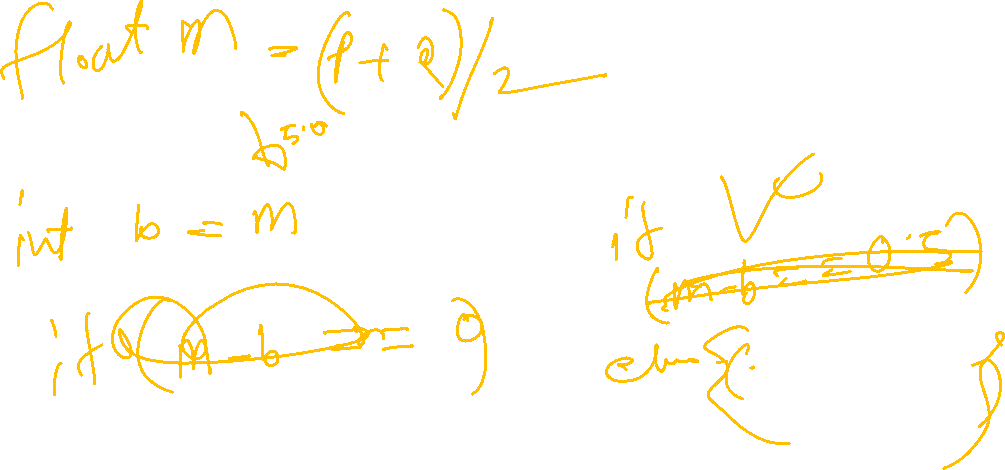 float m = (P + Q)/2
5.0
int b = m
if (m - b == 0)
if
(m - b == 0.5)
else {
}